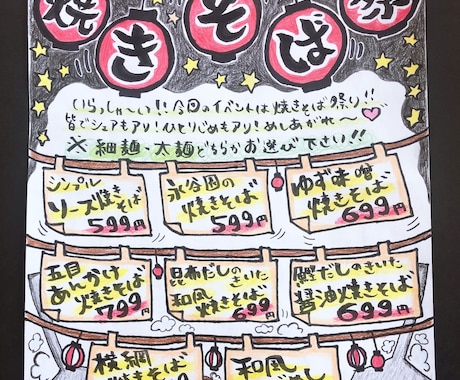 焼きそば祭
いらっしゃ〜い!! 今回のイベントは焼きそば祭り!!
皆でシェアもアリ! ひとりじめもアリ! めしあがれ〜
※ 細麺・太麺どちらかお選び下さい!!
シンプル
ソース焼き
そば
599円
氷谷園の
焼きそば
599円
ゆず味噌
焼きそば
699円
五目
あんかけ
焼きそば
799円
昆布だしの
きいた
和風
焼きそば
699円
鰹だしのきいた
醤油焼きそば
699円
横綱
焼きそば
和風